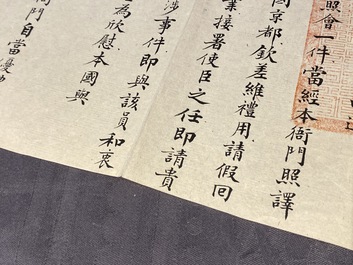 照會一件當經本衙門照譯
國京都欽差維禮用請假回
業接署使臣之任即請貴
涉事件即與該員和衷
為欣慰本國與
衙門自當優